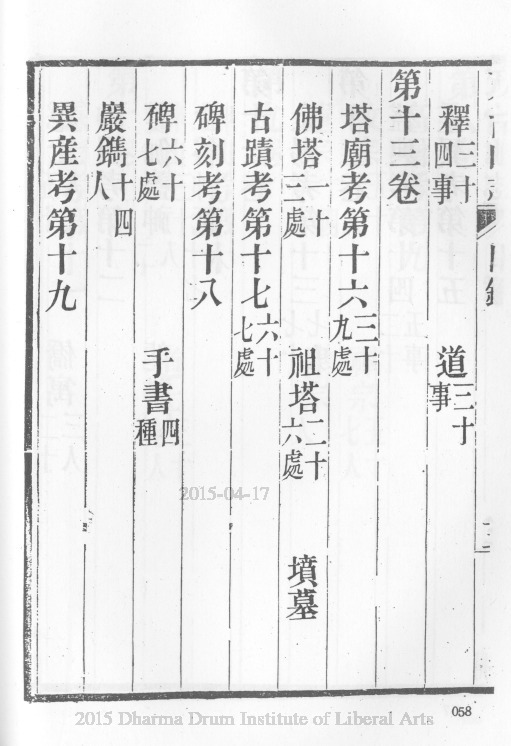 釋三十四事 道三十事
第十三卷
塔廟考第十六三十九處
佛塔一十三處 祖塔二十六處 墳墓
古蹟考第十七六十七處
碑刻考第十八
碑六十七處 手書四種
巖鐫十四人
異産考第十九
2015-04-17
058
2015 Dharma Drum Institute of Liberal Arts